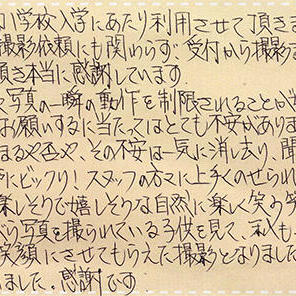 小学校入学にあたり利用させて頂きま
撮影依頼にも関わらず、受付から撮影ま
頂き本当に感謝しています。
写真の一瞬の動作を制限されることが
お願いするに当たってはとても不安がありま
まるや否や、その不安は一気に消し去り、聞
にビックリ!スタッフの方々に上手くのせられ
楽しそうで嬉しそうな自然に楽しく笑う笑
がら写真を撮られている子供を見て、私も
笑顔にさせてもらえた撮影となりました
いました。感謝です